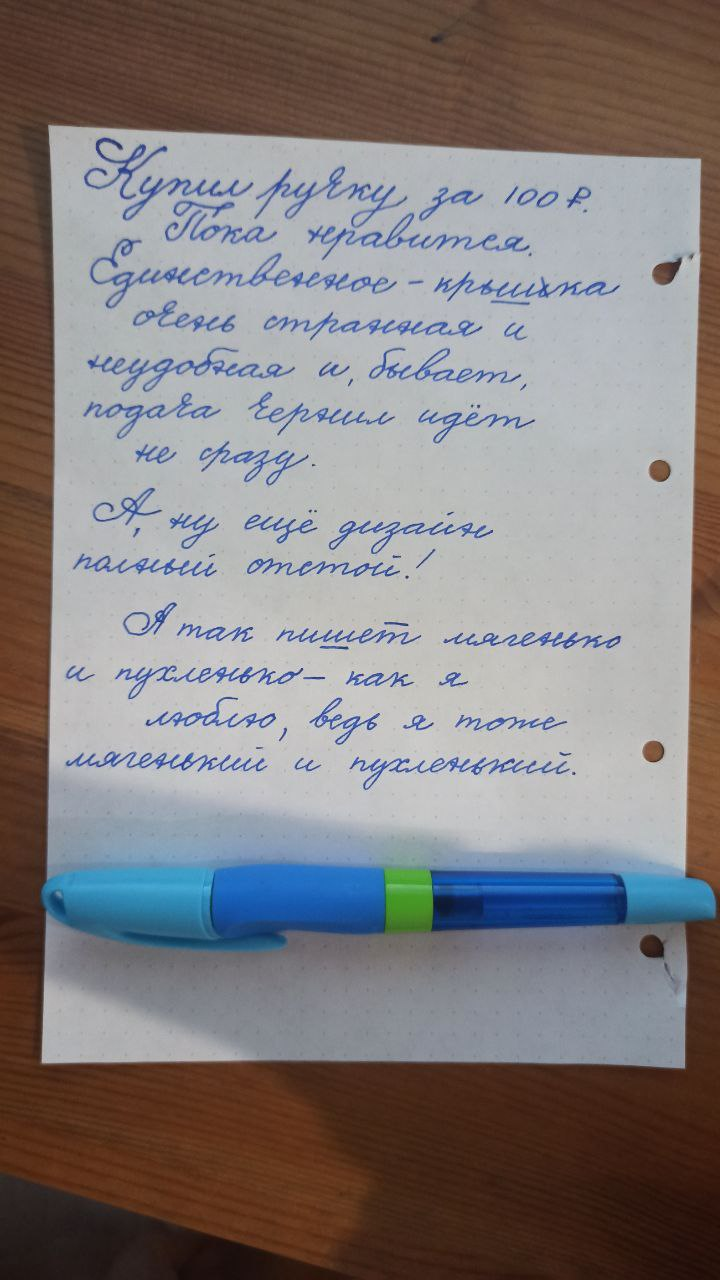 Купил ручку за 100 ₽.
Пока нравится.
Единственное – крышка
очень странная и
неудобная и, бывает,
подача чернил идёт
не сразу.
А, ну ещё дизайн
полный отстой!
А так пишет мягенько
и пухленько – как я
люблю, ведь я тоже
мягенький и пухленький.